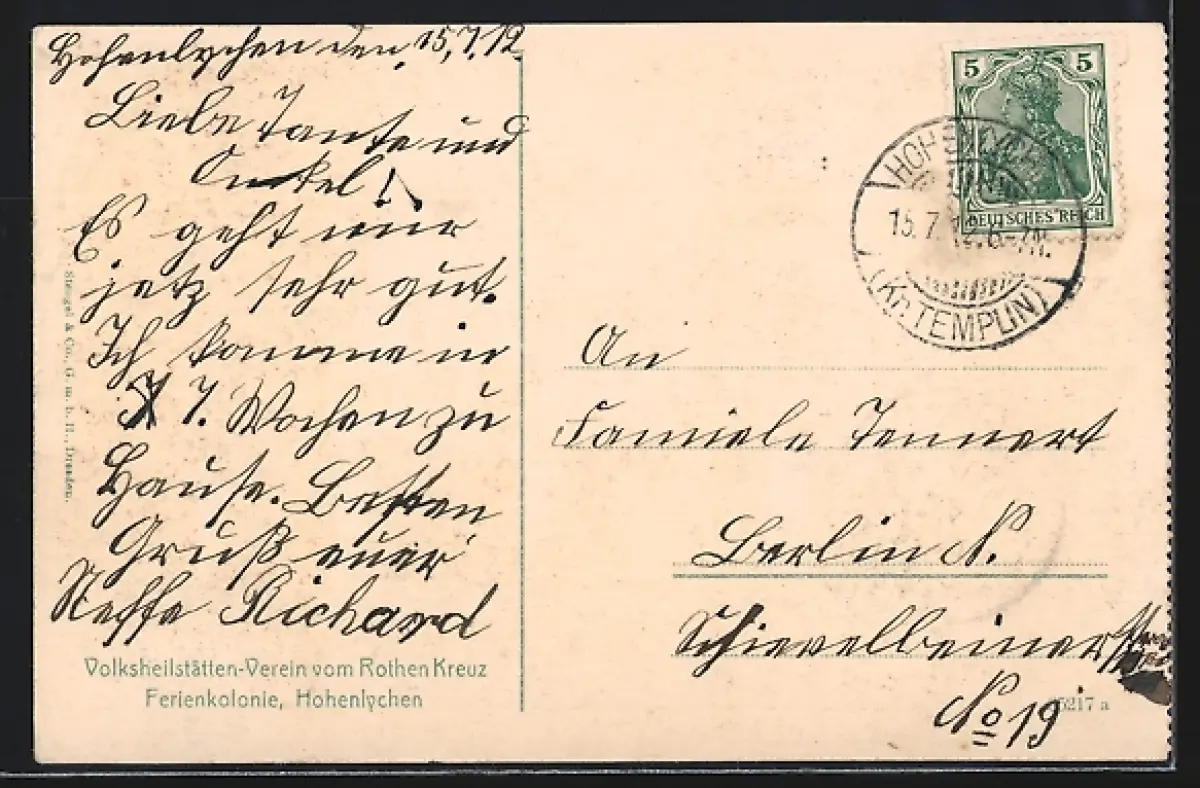 Hohenlychen den, 15,7.12.
Liebe Tante und
Onkel!
Es geht mir
jetz sehr gut.
Ich komme in
7. Wochen zu
Hause. Besten
Gruß euer
Neffe Richard
Volksheilstätten-Verein vom Rothen Kreuz
Ferienkolonie, Hohenlychen
Stengel & Co., G. m. b. H., Dresden.
5 5
DEUTSCHES REICH
HOHENLYCHEN
15.7.12.6-7N.
(Kr. TEMPLIN)
An
Famiele Tennert
Berlin N.
Schievelbeiner
No 19
217 a